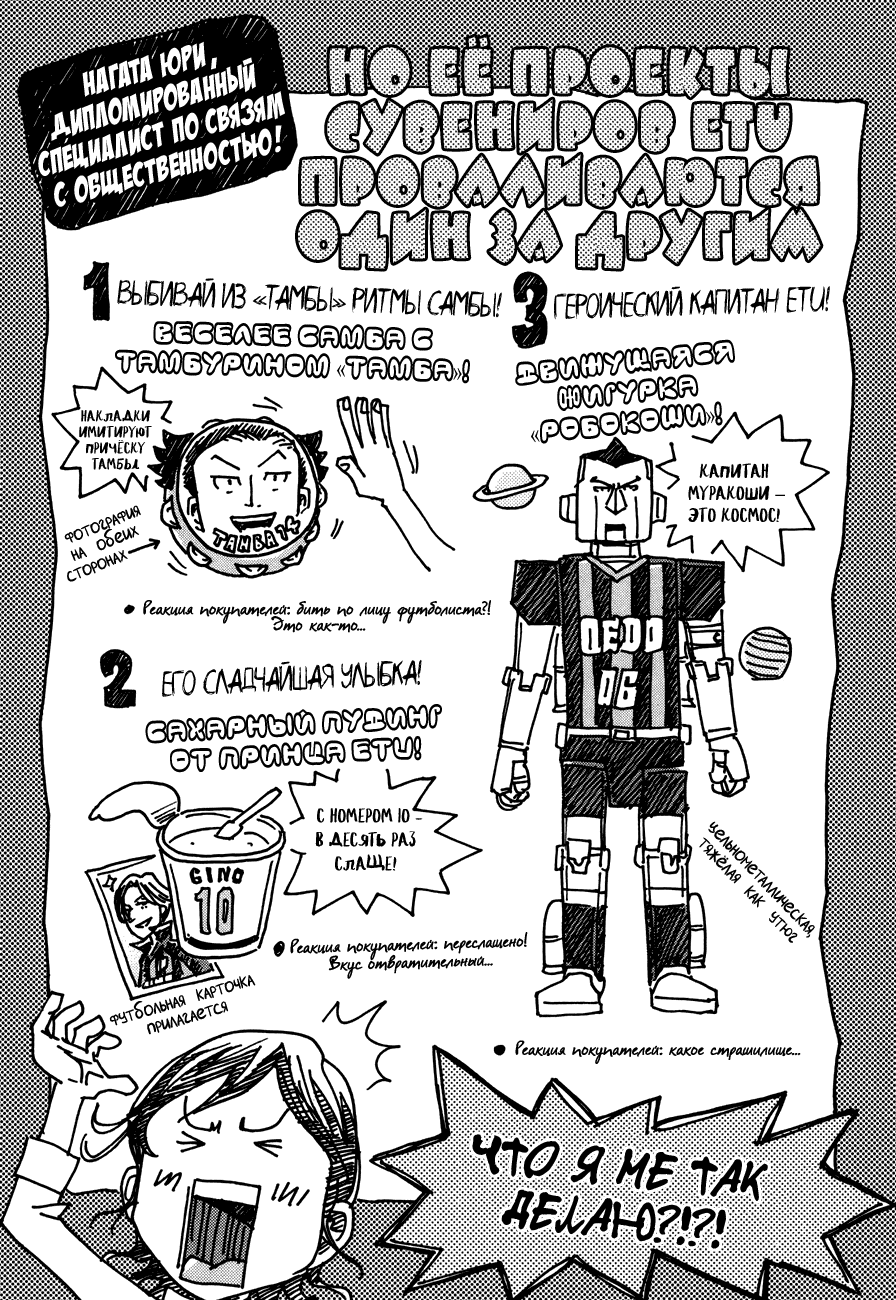 НАГАТА ЮРИ,
ДИПЛОМИРОВАННЫЙ
СПЕЦИАЛИСТ ПО СВЯЗЯМ
С ОБЩЕСТВЕННОСТЬЮ!
НО ЕЁ ПРОЕКТЫ
СУВЕНИРОВ ETU
ПРОВАЛИВАЮТСЯ
ОДИН ЗА ДРУГИМ
1 ВЫБИВАЙ ИЗ «ТАМБЫ» РИТМЫ САМБЫ!
ВЕСЕЛЕЕ САМБА С
ТАМБУРИНОМ «ТАМБА»!
НАКЛАДКИ
ИМИТИРУЮТ
ПРИЧЁСКУ
ТАМБЫ
ФОТОГРАФИЯ
НА ОБЕИХ
СТОРОНАХ
ТАМБА 14
• Реакция покупателей: бить по лицу футболиста?!
Это как-то...
2 ЕГО СЛАДЧАЙШАЯ УЛЫБКА!
САХАРНЫЙ ПУДИНГ
ОТ ПРИНЦА ETU!
С НОМЕРОМ 10 –
В ДЕСЯТЬ РАЗ
СЛАЩЕ!
GINO
10
ФУТБОЛЬНАЯ КАРТОЧКА
ПРИЛАГАЕТСЯ
• Реакция покупателей: переслащено!
Вкус отвратительный...
3 ГЕРОИЧЕСКИЙ КАПИТАН ETU!
ДВИЖУЩАЯСЯ
ФИГУРКА
«РОБОКОШИ»!
КАПИТАН
МУРАКОШИ –
ЭТО КОСМОС!
06
ЦЕЛЬНОМЕТАЛЛИЧЕСКАЯ,
ТЯЖЁЛАЯ КАК УТЮГ
• Реакция покупателей: какое страшилище...
ЧТО Я НЕ ТАК
ДЕЛАЮ?!?!